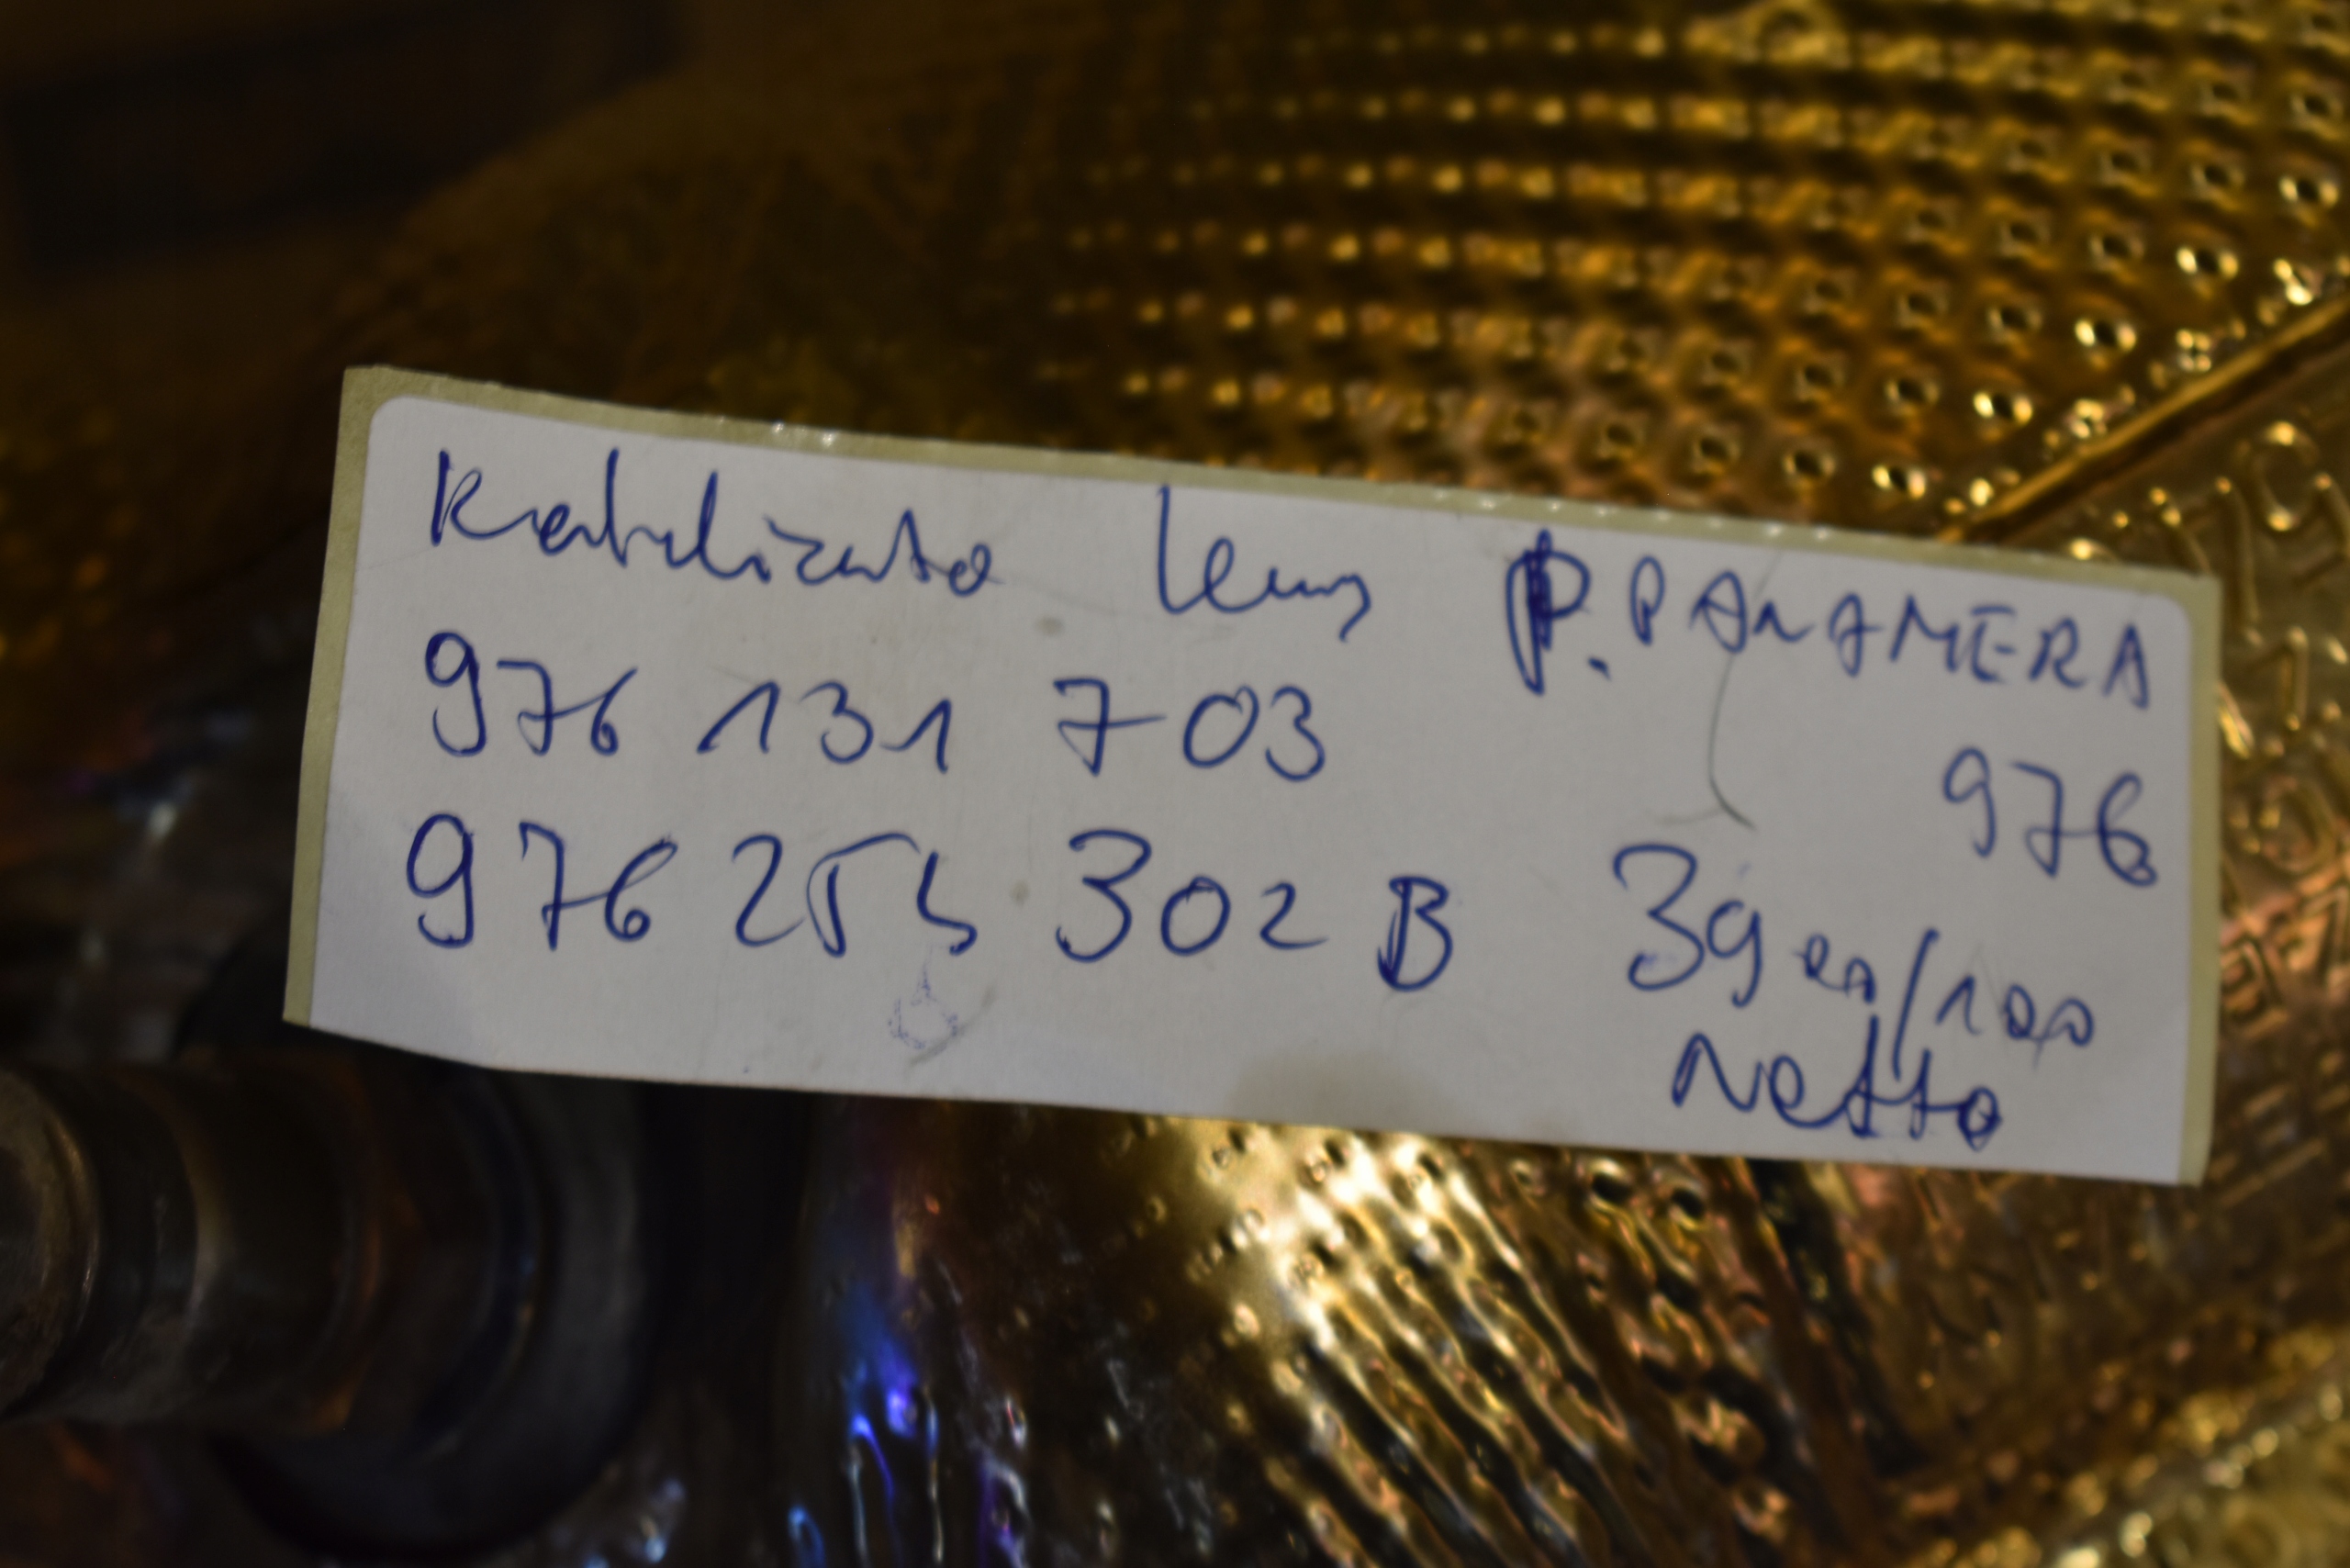 Katalizator lewy P. PANAMERA
976 131 703
976
976 254 302 B
39 en/100
Netto